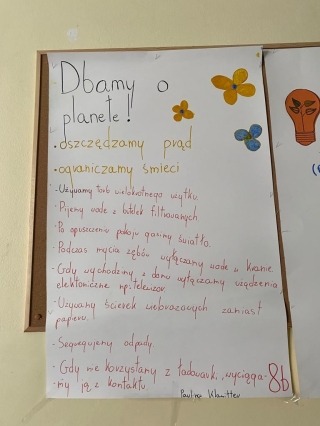 Dbamy o
planetę!
• oszczędzamy prąd
• ograniczamy śmieci
• Używamy toreb wielokrotnego użytku.
• Pijemy wodę z butelek filtrowanych
• Po opuszczeniu pokoju gasimy światło.
• Podczas mycia zębów wyłączamy wodę w kranie.
• Gdy wychodzimy z domu wyłączamy urządzenia
elektroniczne np. telewizor.
• Używamy ścierek wielorazowych zamiast
papieru.
• Segregujemy odpady.
• Gdy nie korzystamy z ładowarki, wyciąga-
my ją z kontaktu.
8b
Paulina